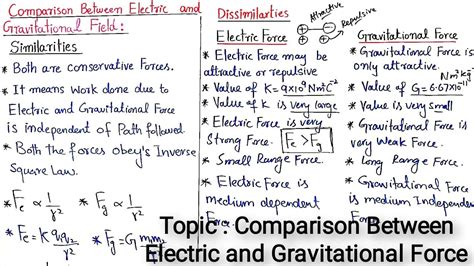 Comparison Between Electric and
Gravitational Field :
Similarities
* Both are conservative Forces.
* It means Work done due to
Electric and Gravitational Force
is independent of Path followed.
* Both the forces obey's Inverse
Square Law.
* Fe ∝ 1/r² * Fg ∝ 1/r²
* Fe = K q₁q₂/r² * Fg = G m₁m₂/r²
Dissimilarties
Attractive
Repulsive
Electric Force
* Electric Force may be
attractive or repulsive
* Value of K = 9x10⁹ Nm²C⁻²
* Value of k is very large
* Electric Force is very
Strong Force. Fe > Fg
* Small Range Force.
* Electric Force is
medium dependent
Force.
Gravitational Force
* Gravitational Force is
only attractive.
Nm²kg⁻²
* Value of G = 6.67x10⁻¹¹
* Value is very small
* Gravitational Force is
very Weak Force.
* Long Range Force.
* Gravitational Force
is medium Independent
Force
Topic : Comparison Between
Electric and Gravitational Force